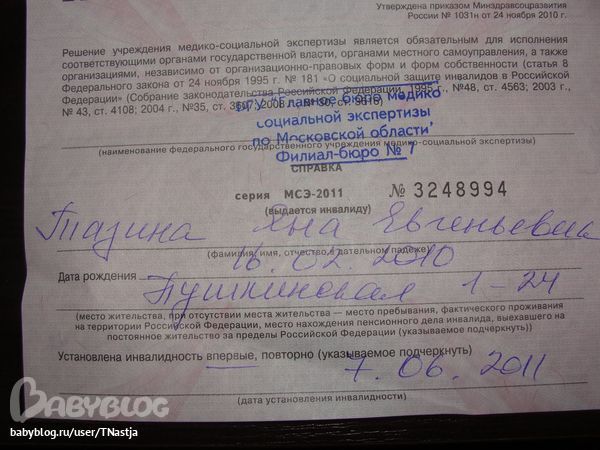 Утверждена приказом Минздравсоцразвития
России № 1031н от 24 ноября 2010 г.
Решение учреждения медико-социальной экспертизы является обязательным для исполнения
соответствующими органами государственной власти, органами местного самоуправления, а также
организациями, независимо от организационно-правовых форм и форм собственности (статья 8
Федерального закона от 24 ноября 1995 г. № 181 «О социальной защите инвалидов в Российской
Федерации» (Собрание законодательства Российской Федерации, 1995 г., №48, ст. 4563; 2003 г.,
№ 43, ст. 4108; 2004 г., №35, ст.
ФГУ "Главное бюро медико
социальной экспертизы
по Московской области"
Филиал-бюро № 7
(наименование федерального государственного учреждения медико-социальной экспертизы)
СПРАВКА
серия МСЭ-2011 № 3248994
(выдается инвалиду)
Тазина Яна Евгеньевна
(фамилия, имя, отчество в дательном падеже)
16.02.2010
Дата рождения
Пушкинская 1-24
(место жительства, при отсутствии места жительства — место пребывания, фактического проживания
на территории Российской Федерации, место нахождения пенсионного дела инвалида, выехавшего на
постоянное жительство за пределы Российской Федерации (указываемое подчеркнуть))
Установлена инвалидность впервые, повторно (указываемое подчеркнуть)
7.06.2011
(дата установления инвалидности)
BABYBLOG
babyblog.ru/user/TNastja